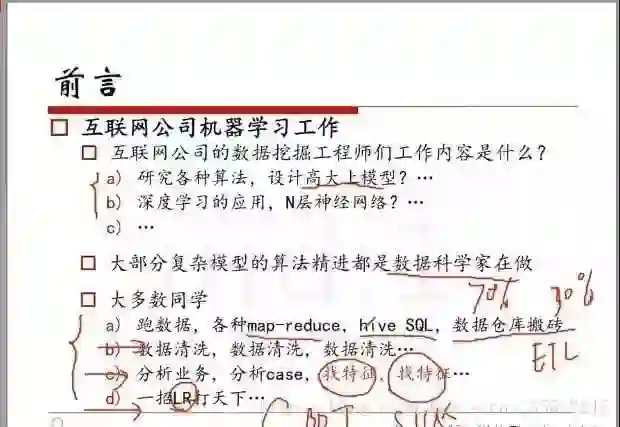 前言
互联网公司机器学习工作
互联网公司的数据挖掘工程师们工作内容是什么？
a) 研究各种算法，设计高大上模型？…
b) 深度学习的应用，N层神经网络？…
c) …
大部分复杂模型的算法精进都是数据科学家在做
70%
大多数同学
a) 跑数据，各种map-reduce，hive SQL，数据仓库搬砖
ETL
b) 数据清洗，数据清洗，数据清洗…
c) 分析业务，分析case，找特征，找特征…
d) 一招LR打天下…